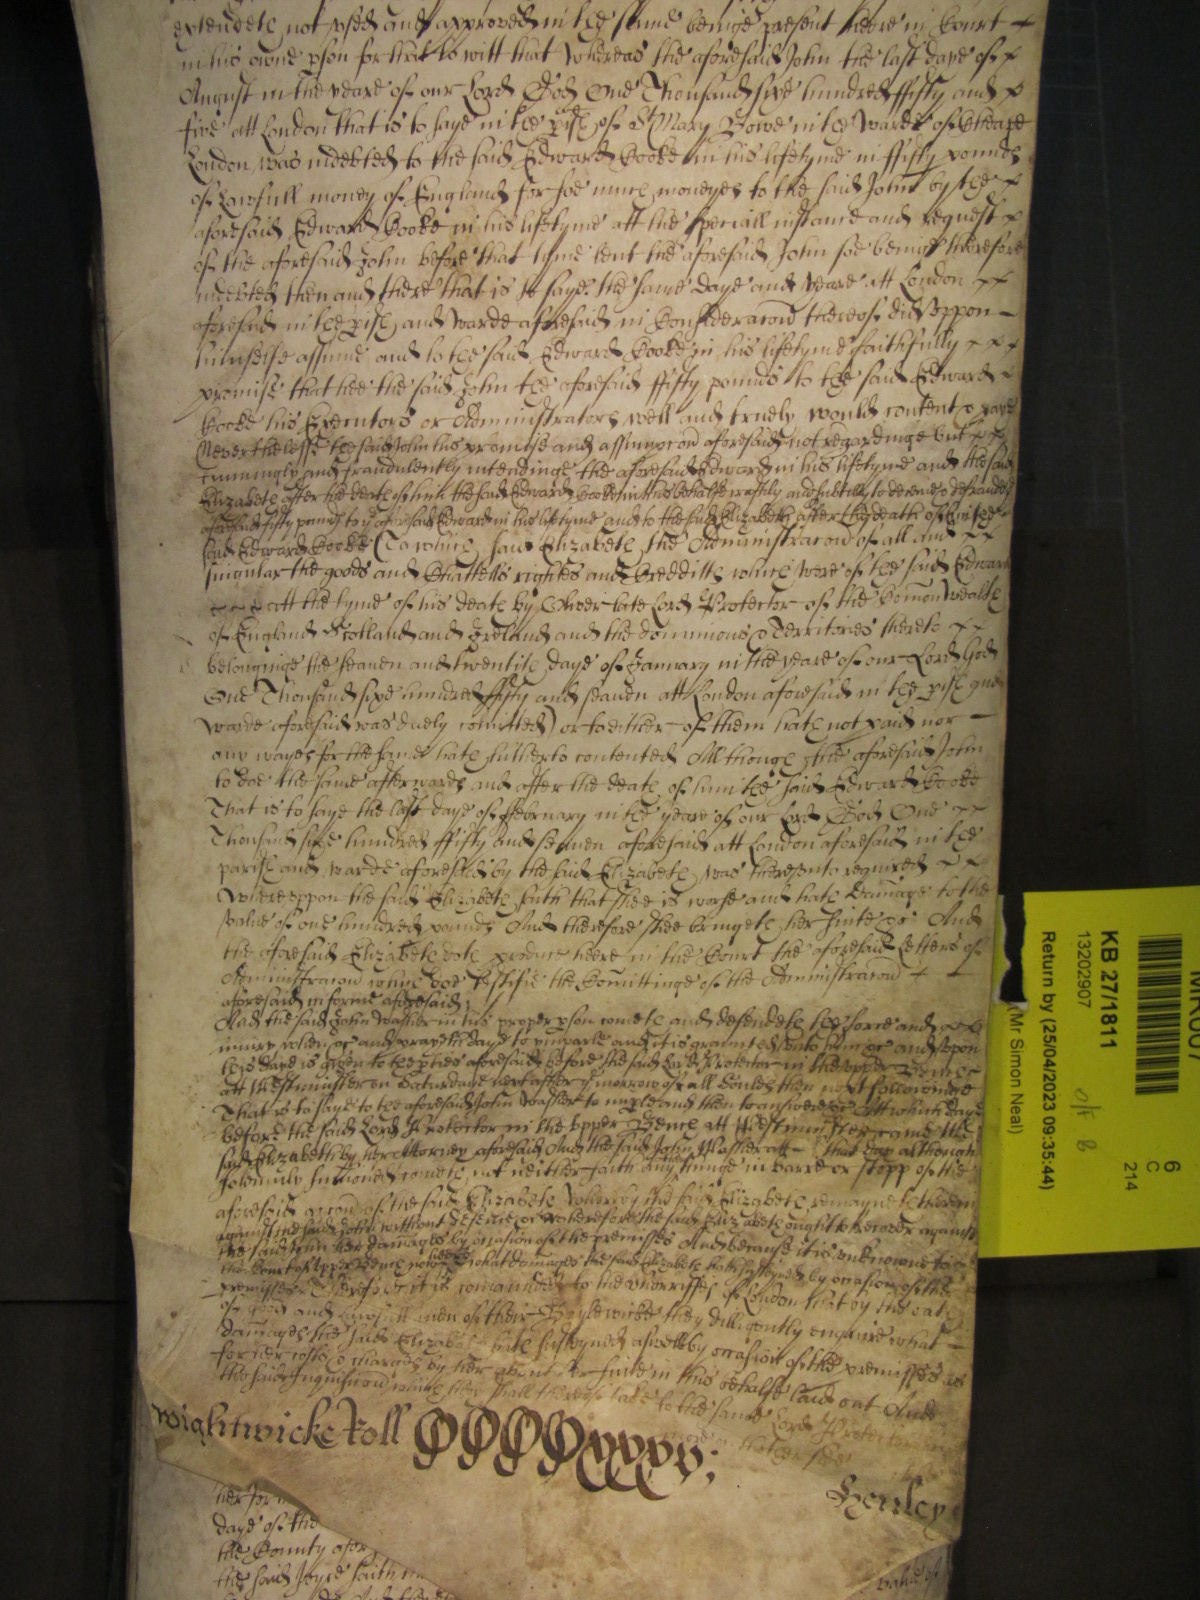 extendeth not used and approved in the same beinge present heere in Court
in his owne pson for that to witt that Whereas the aforesaid John the last daye of
August in the yeare of our Lord God One Thousand sixe hundred ffifty and
five att London that is to saye in the pish of St Mary Bowe in the Warde of Cheape
London was indebted to the said Edward Cooke in his lifetyme in ffifty pounds
of Lawfull money of England for soe much moneyes to the said John by the
aforesaid Edward Cooke in his lifetyme att the speciall instance and request
of the aforesaid John before that tyme lent the aforesaid John soe beinge therefore
indebted then and there that is to saye the same daye and yeare att London
aforesaid in the pish and Warde aforesaid in Consideracon thereof did uppon
himselfe assume and to the said Edward Cooke in his lifetyme faithfully
promise that hee the said John the aforesaid ffifty pounds to the said Edward
Cooke his Executors or Administrators well and truely would content & paye
Neverthelesse the said John his promise and assumpcon aforesaid not regardinge but
cunningly and fraudulently intendinge the aforesaid Edward in his lifetyme and the said
Elizabeth after the death of him the said Edward Cooke in this behalfe craftily and subtilly to deceive & defraude
aforesaid ffifty pounds to ye aforesaid Edward in his lifetyme and to the said Elizabeth after the death of him the
said Edward Cooke (To which said Elizabeth the Administracon of all and
singular the goods and Chattells rightes and Creditts which were of the said Edward
att the tyme of his death by Oliver late Lord Protector of the Comon Wealth
of England Scotland and Ireland and the dominions & Territories thereto
belonginge the seaven and twentith daye of January in the yeare of our Lord God
One Thousand sixe hundred ffifty and seaven att London aforesaid in the pish and
warde aforesaid was duely comitted) or to either of them hath not paid nor
any wayes for the same hath hitherto contented Although the aforesaid John
to doe the same afterwards and after the death of him the said Edward Cooke
That is to saye the last daye of February in the yeare of our Lord God One
Thousand sixe hundred ffifty and seaven aforesaid att London aforesaid in the
parish and warde aforesaid by the said Elizabeth was thereunto required
Whereuppon the said Elizabeth saith that shee is worse and hath Damage to the
value of one hundred pounds And therefore shee bringeth her suite &c And
the aforesaid Elizabeth doth produce heere in the Court the aforesaid Letters of
Administracon which doe testifie the Comittinge of the Administracon
aforesaid in forme aforesaid;
And the said John Washer in his proper pson cometh and defendeth the force and
injury when &c and prayeth daye to imparle and it is graunted unto him &c and uppon
this daye is given to the pties aforesaid before the said Lord Protector in the upper Bench
att Westminster on Saturdaye next after ye morrow of all Soules then next followinge
That is to saye to the aforesaid John Washer to imple and then to answere &c Att which daye
before the said Lord Protector in the upper Bench att Westminster came the
said Elizabeth by her Attorney aforesaid And the said John Washer att that day although
solemnly summoned cometh not neither saith any thinge in barre or stopp of the
aforesaid accon of the said Elizabeth Whereby the said Elizabeth remayneth therein
against the said John without defence &c Wherefore the said Elizabeth ought to recover against
the said John her damages by occasion of the premisses And because it is unknowne to
the Court of upper Bench what damages the said Elizabeth hath susteyned by occasion of the
premisses Therefore it is comanded to the Sherriffes of London that by the oath
of good and lawfull men of their Baylewicke they dilligently enquire what
damages the said Elizabeth hath susteyned aswell by occasion of the premisses as
for her costs & charges by her about her suite in this behalfe laid out And
the said Inquisicon which they shall thereof take to the same Lord Protector
Wightwicke Roll
Henley
her for
daye of the
the County afor
the said Joyce saith
value of
KB 27/1811
13202907
Return by (25/04/2023 09:35:44)
(Mr Simon Neal)
6
C
214
o/s 8